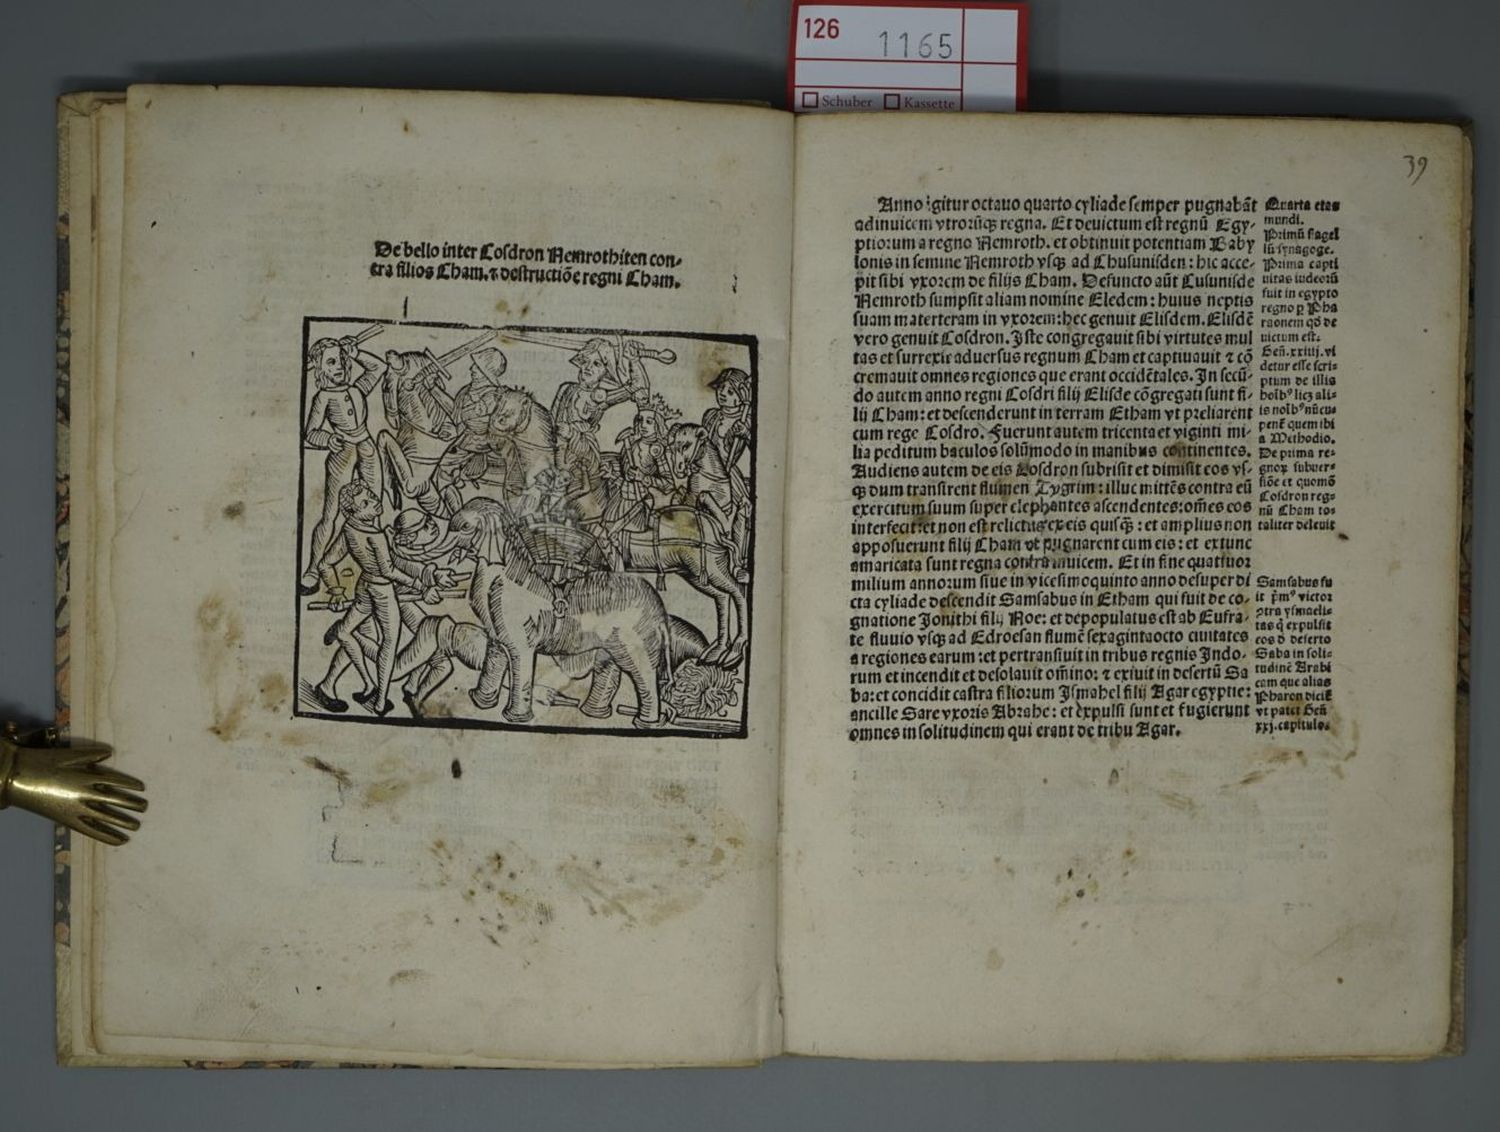 126
1165
Schuber Kassette
39
De bello inter Cosdron Nemrothiten con-
tra filios Cham. ⁊ destructiõe regni Cham.
Anno igitur octauo quarto cyliade semper pugnabãt
adinuicem vtrorũqꝫ regna. Et deuictum est regnũ Egy-
ptiorum a regno Nemroth. et obtinuit potentiam Baby
lonis in semine Nemroth vsqꝫ ad Chusunisden: hic acce-
pit sibi vxorem de filijs Cham. Defuncto aũt Cusunisde
Nemroth sumpsit aliam nomine Eledem: huius neptis
suam materteram in vxorem: hec genuit Elisdem. Elisdẽ
vero genuit Cosdron. Iste congregauit sibi virtutes mul
tas et surrexit aduersus regnum Cham et captiuauit ⁊ cõ
cremauit omnes regiones que erant occidẽtales. In secũ-
do autem anno regni Cosdri filij Elisde cõgregati sunt fi-
lij Cham: et descenderunt in terram Etham vt preliarent
cum rege Cosdro. Fuerunt autem tricenta et viginti mi-
lia peditum baculos solũmodo in manibus continentes.
Audiens autem de eis Cosdron subrisit et dimisit eos vs-
qꝫ dum transirent flumen Tygrim: illuc mittẽs contra eũ
exercitum suum super elephantes ascendentes: om̃es eos
interfecit: et non est relictus ex eis quisqꝫ̃: et amplius non
apposuerunt filij Cham vt pugnarent cum eis: et extunc
amaricata sunt regna contra inuicem. Et in fine quattuor
milium annorum siue in vicesimoquinto anno desuper di
cta cyliade descendit Samsabus in Etham qui fuit de co-
gnatione Jonithi filij Noe: et depopulatus est ab Eufra-
te fluuio vsqꝫ ad Edroesan flumẽ sexagintaocto ciuitates
a regiones earum: et pertransiuit in tribus regnis Indo-
rum et incendit et desolauit om̃ino: ⁊ exiuit in desertũ Sa
ba: et concidit castra filiorum Ismahel filij Agar egyptie:
ancille Sare vxoris Abrahe: et expulsi sunt et fugierunt
omnes in solitudinem qui erant de tribu Agar.
Quarta etas
mundi.
Primũ flagel
lũ synagoge.
Prima capti
uitas iudeorũ
fuit in egypto
regno p Pha
raonem qd̃ de
uictum est.
Geñ. xxiiij. vi
detur esse scri-
ptum de illis
licꝫ ali-
a Methodio.
De prima re-
gnoꝝ subuer-
siõe et quomõ
Cosdron reg-
nũ Cham to-
taliter deleuit
Samsabus fu
it pm̃⁹ victor
ꝯtra ysmaeli-
tas q̃ expulsit
eos d̃ deserto
Saba in soli-
tudinẽ Arabi
cam que alias
Pharon diciť
vt patet Geñ
xxj. capitulo.